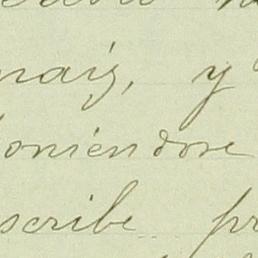 maiz, y
oniéndose
scribe pr